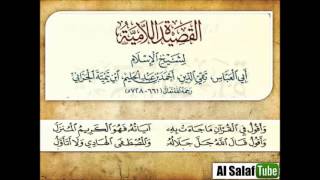 القصيدة اللامية
لشيخ الإسلام
أبي العباس، تقي الدين، أحمد بن عبد الحليم، ابن تيمية الحراني
رحمه الله تعالى (٦٦١-٧٢٨هـ)
وأقول في القرآن ما جاءت به آياته فهو الكريم المنزل
وأقول قال الله جل جلاله والمصطفى الهادي ولا أتأول
Al Salaf Tube